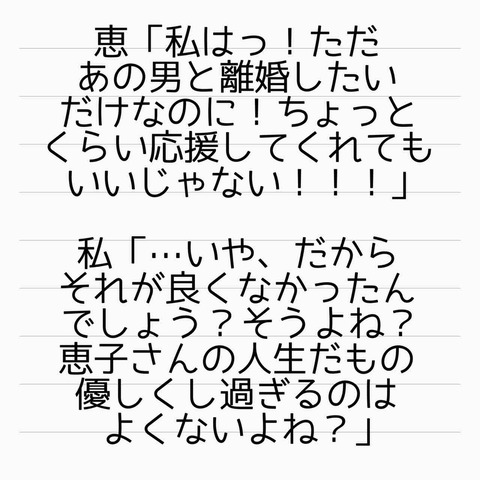 恵「私はっ！ただ
あの男と離婚したい
だけなのに！ちょっと
くらい応援してくれても
いいじゃない！！！」
私「…いや、だから
それが良くなかったん
でしょう？そうよね？
恵子さんの人生だもの
優しくし過ぎるのは
よくないよね？」